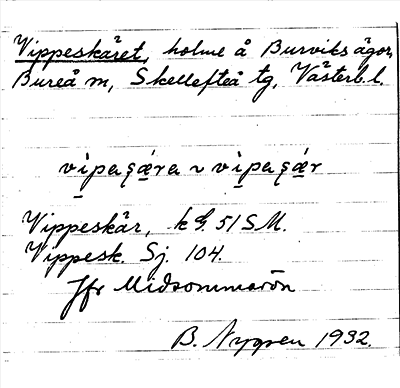 Vippeskäret, holme å Burviks ägor,
Bureå sn, Skellefteå tg, Västerb. l.
vìpaʂæ̀ra ~ vìpaʂæ̀r
Vippeskär, k G. 51 S.M.
Vippesk. Sj. 104.
Jfr Midsommarön
B. Nygren 1932.